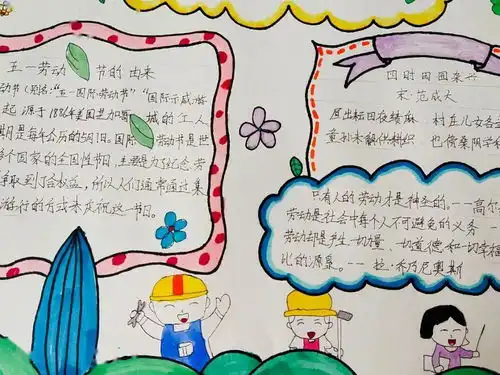 五一劳动节的由来
动节(又称:"五一国际劳动节""国际示威游
起源于1886年美国芝加哥城的工人
期是每年公历的5月1日。国际劳动节是世
多个国家的全国性节日,主要是为了纪念劳
争取到了合权益,所以人们通常通过集
游行的方式来庆祝这一节日。
四时田园杂兴
宋·范成大
昼出耘田夜绩麻 村庄儿女各
童孙未解供耕织 也傍桑阴学
只有人的劳动才是神圣的。——高尔
劳动是社会中每个人不可避免的义务
劳动却是产生一切力量 一切道德和一切幸福
比的源泉。——拉·乔乃尼奥斯